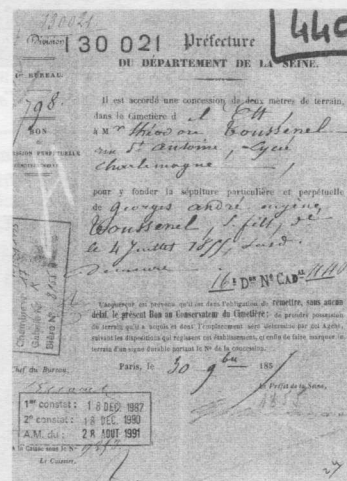 130021
Division
30 021
440
Préfecture
DU DÉPARTEMENT DE LA SEINE.
BUREAU.
798.
BON
Il est accordé une concession de deux mètres de terrain,
dans le Cimetière d
à M. Théodore Toussenel
rue St Antoine, Lycée
Charlemagne
CESSION PERPÉTUELLE
pour y fonder la sépulture particulière et perpétuelle
de Georges André Eugène
Toussenel, S. fils, dé
le 4 Juillet 1855, Susd.
demeure
16e Don No CAD al 1140
L'acquéreur est prévenu qu'il est dans l'obligation de remettre, sans aucun
délai, le présent Bon au Conservateur du Cimetière; de prendre possession
du terrain qu'il a acquis et dont l'emplacement sera déterminé par cet Agent,
suivant les dispositions qui régissent cet établissement, et enfin de faire marquer le
terrain d'un signe durable portant le No de la concession.
Paris, le 30 9bre 185
Chef du Bureau,
Le Préfet de la Seine,
1er constat : 18 DEC 1987
2e constat : 18 DEC. 1990
A.M. du : 28 AOUT 1991
la Caisse sous le No
Le Caissier,
27